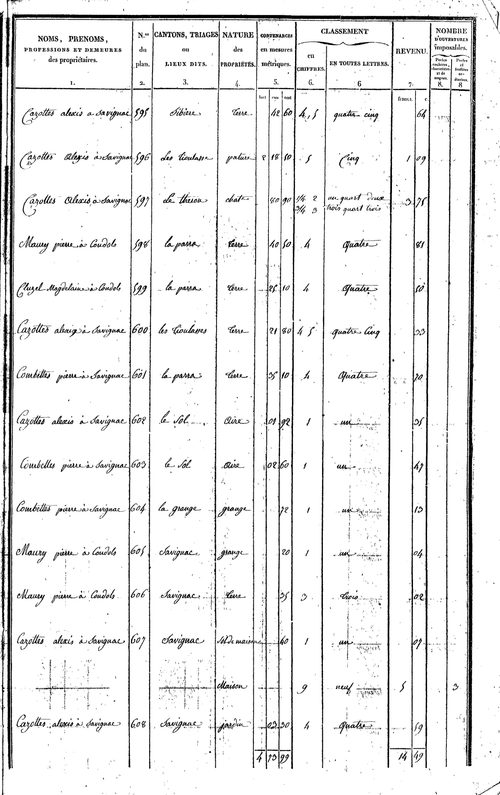 NOMS, PRENOMS, PROFESSIONS ET DEMEURES des propriétaires. N.os du plan. CANTONS, TRIAGES ou LIEUX DITS. NATURE des PROPRIÉTÉS. CONTENANCES en mesures métriques. CLASSEMENT en CHIFFRES. EN TOUTES LETTRES. REVENU. NOMBRE D'OUVERTURES imposables.
1. 2. 3. 4. 5. 6. 6 7. 8. 8
Cazottes alexis à Savignac 595 terre 42 60 4, 5 quatre cinq 64
Cazottes Alexis à Savignac 596 Les Coulasses pature 2 18 50 5 Cinq 1 09
Cazottes Alexis à Savignac 597 80 90 1/4 2 un quart deux 3 75
3/4 3 trois quart trois
Maury pierre à Coudols 598 la parra terre 40 50 4 Quatre 81
Cluzel Magdelaine à Coudols 599 la parra terre 25 10 4 Quatre 50
Cazottes alexis à Savignac 600 les Coulasses terre 21 80 4 5 quatre Cinq 33
Combettes pierre à Savignac 601 la parra terre 35 10 4 Quatre 70
Cazottes alexis à Savignac 602 le Sol Aire 01 92 1 un 35
Combettes pierre à Savignac 603 le Sol Aire 02 60 1 un 47
Combettes pierre à Savignac 604 la grange grange 72 1 un 13
Maury pierre à Coudols 605 Savignac grange 20 1 un 04
Maury pierre à Coudols 606 Savignac terre 35 3 trois 02
Cazottes alexis à Savignac 607 Savignac Sol de maison 40 1 un 07
Maison 9 neuf 5 3
Cazottes alexis à Savignac 608 Savignac jardin 03 30 4 Quatre 59
4 73 99 14 49